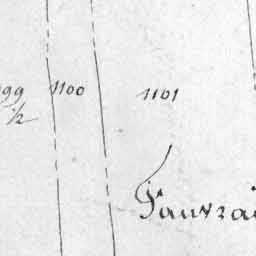 99 1100 1101
1/2